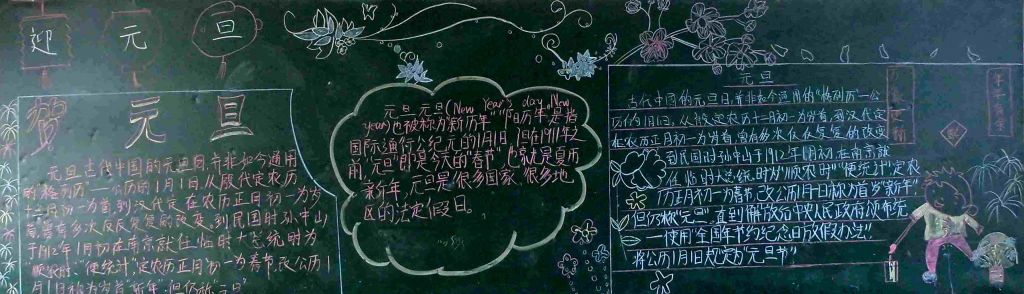 迎 元 旦
贺 元 旦
元旦古代中国的元旦日并非如今通用
的"格列历"——公历的1月1日,从殷代定农历
十二月初一为首到汉代定在农历正月初一为岁
首,曾有多次反反复复的改变,到民国时孙中山
于1912年1月初在南京就任临时大总统时为
"顺农时""便统计",定农历正月初一为春节,改公历1
月1日称为岁首"新年",但仍称"元旦"
元旦 元旦(New Year's day,New
year)也被称为"新历年""阳历年"是指
国际通行公纪元的1月1日,但在1911年之
前,"元旦"即是今天的"春节",也就是夏历
新年,元旦是很多国家 很多地
区的法定假日。
元旦
古代中国的元旦日,并非如今通用的"格列历"一公
历的1月1日,从殷定农历十二月初一为岁首,到汉代定
在农历正月初一为岁首,曾有多次反反复复的改变
到民国时孙中山于1912年1月初在南京就
任临时大总统时为"顺农时""便统计"定农
历正月初一为春节,改公历1月1日称为岁首"新年"
但仍称"元旦"直到解放后中央人民政府颁布统
一使用"全国年节约纪念日放假办法"
将公历1月1日规定为"元旦节"
年年有余